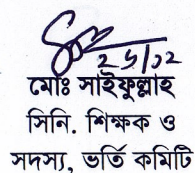 ২৬/১২
মোঃ সাইফুল্লাহ
সিনি. শিক্ষক ও
সদস্য, ভর্তি কমিটি